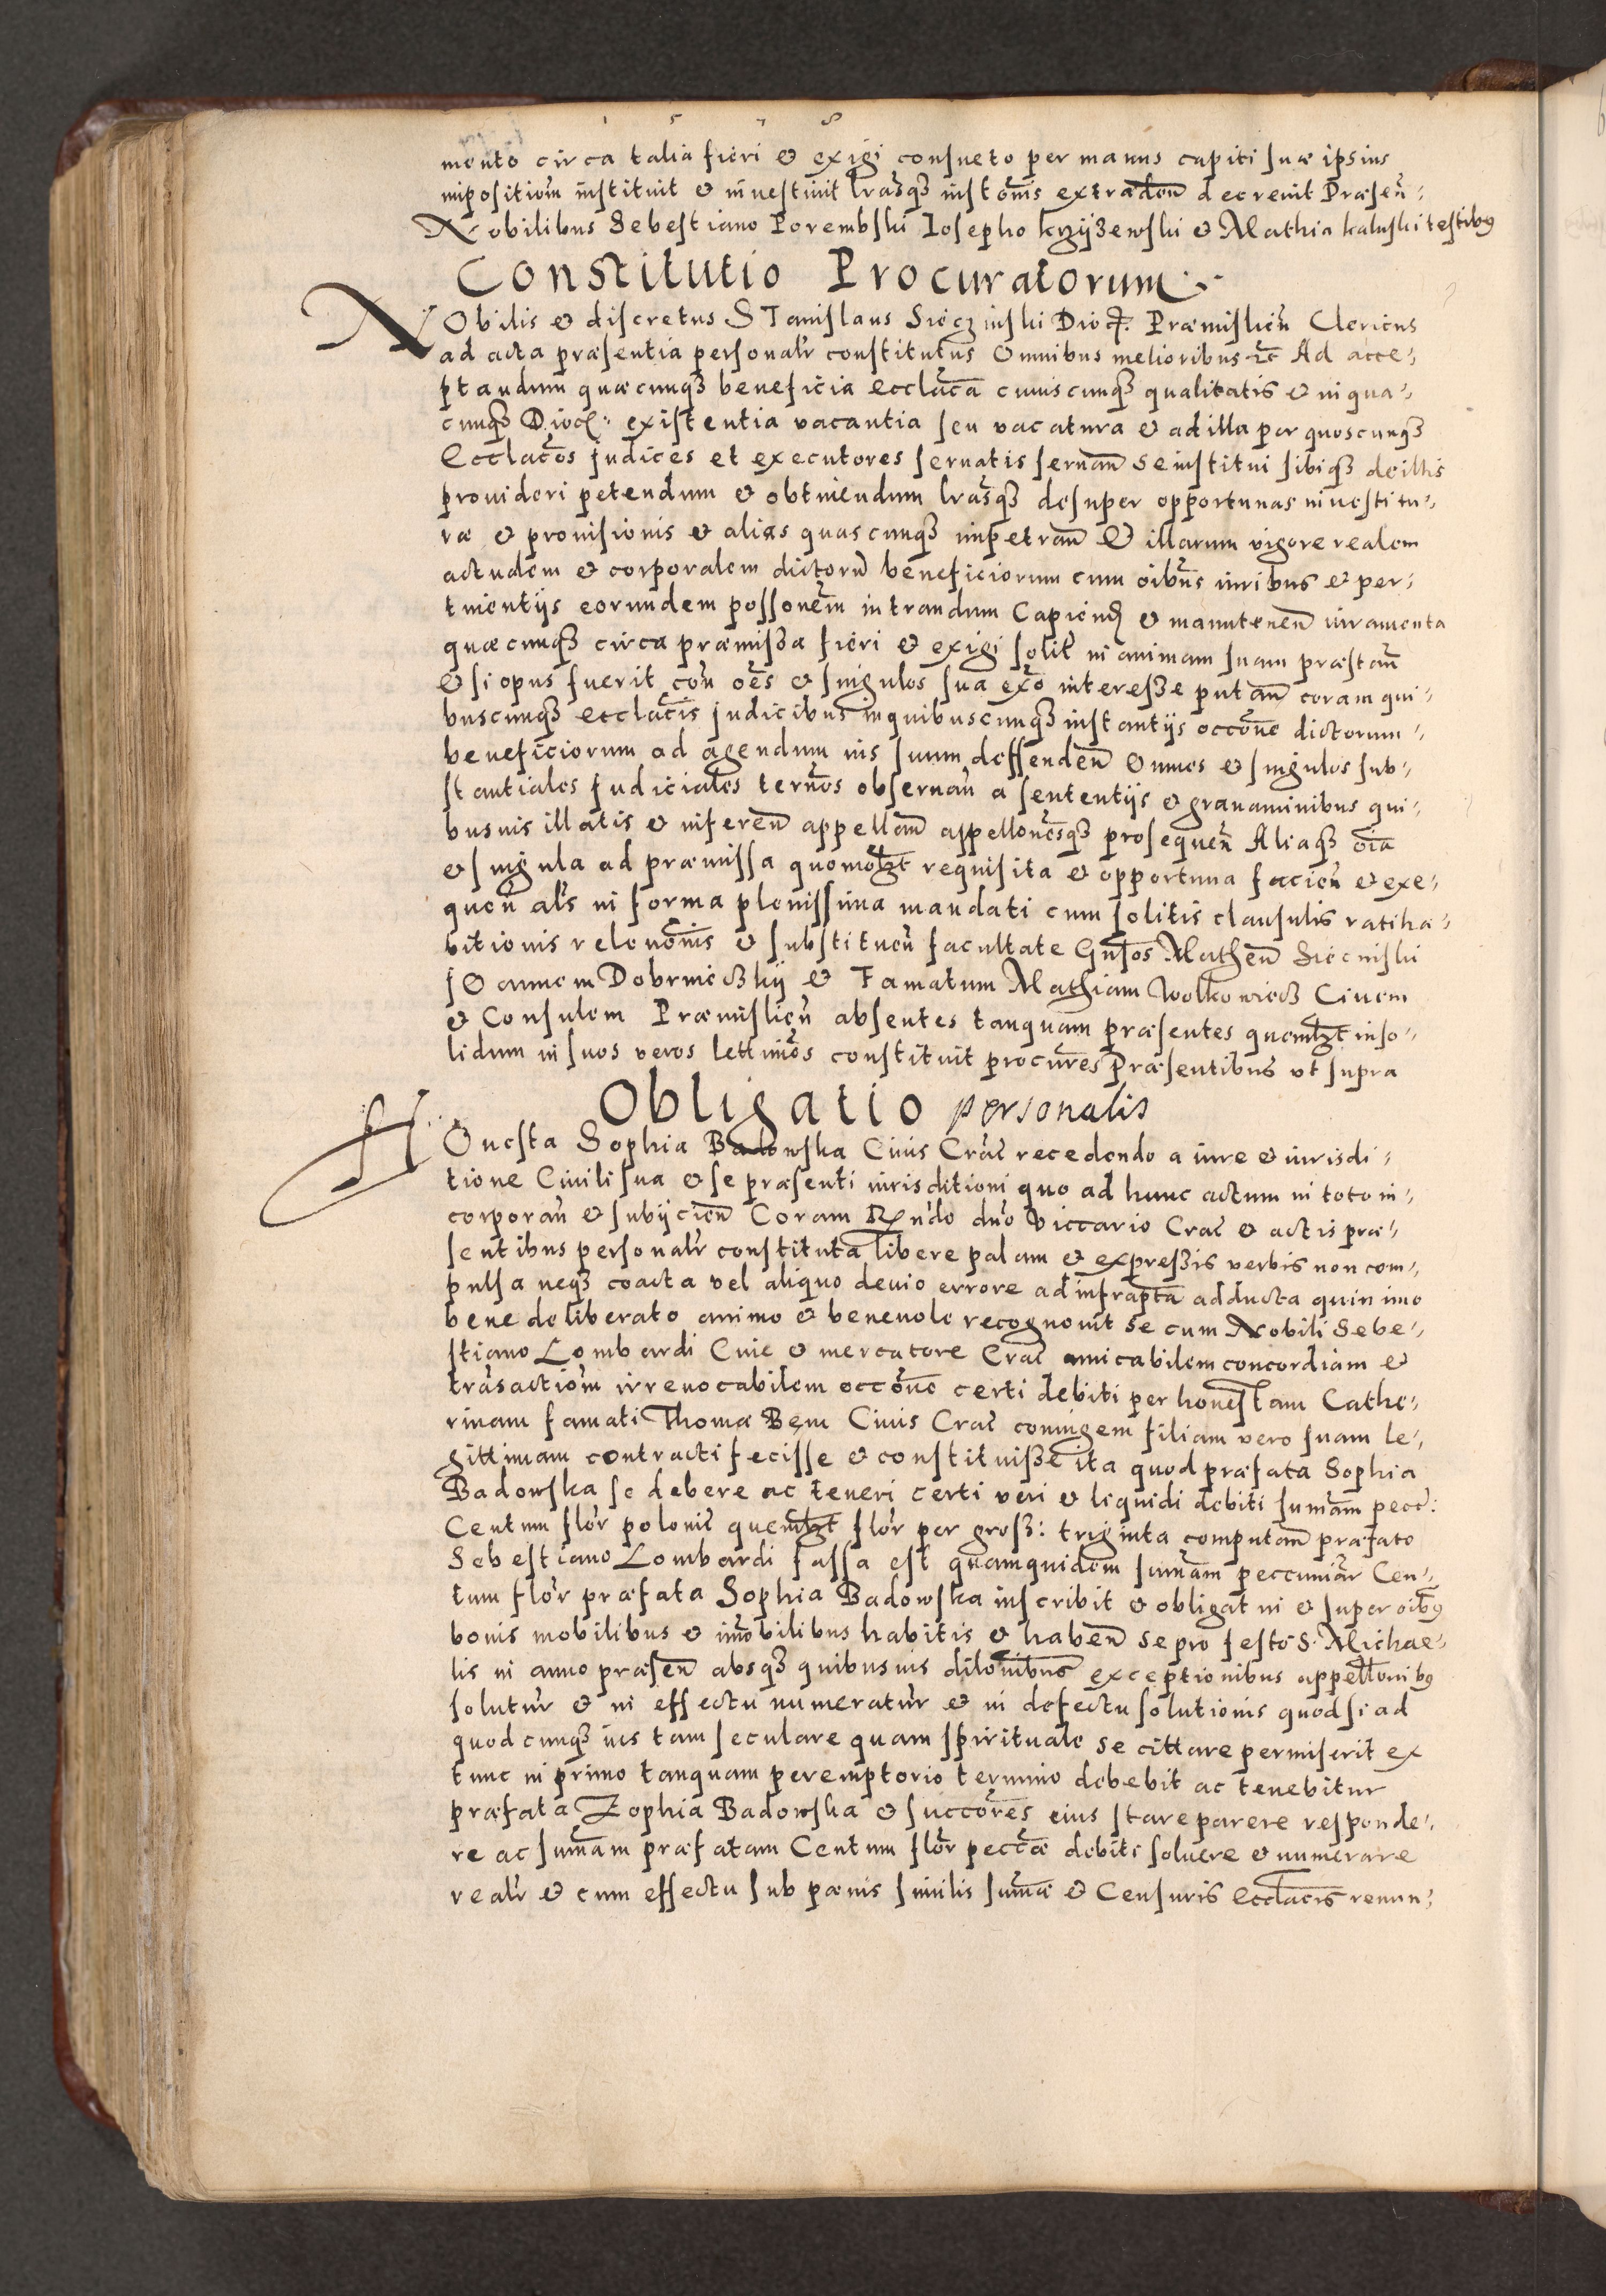 mento circa talia fieri & exigi consueto per manus capiti suæ ipsius
impositiom̃ instituit & inuestiuit lrãsq₃ inst̃onis extraden̄ decreuit Præsen̄:
Nobilibus Sebestiano Porembski Iosepho krzyżewski & Mathia kaluski testibꝯ
Constitutio Procuratorum
NObilis & discretus STanislaus Siecz inski Dioc. Præmislien̄ Clericus
ad acta præsentia personalr̃ constitutus Omnibus melioribus ꝛc̄ Ad acce:,
ptandum quæcunq₃ beneficia eccla̅ca cuiuscunq₃ qualitatis & in qua:,
cunq₃ Dioc: existentia vacantia seu vacatura & ad illa per quoscunq₃
Eccla̅cos judices et executores seruatis seruan̄ se institui sibiq₃ de illis
prouideri petendum & obtinendum lrãsq₃ desuper opportunas inuestitu:,
ræ & prouisionis & alias quascunq₃ impetran̄ & illarum vigore realem
actualem & corporalem dictorũ beneficiorum cum oibũs iuribus & per:,
tinentijs eorundem possonẽm intrandum Capiend & manutenen̄ iuramenta
quæcunq₃ circa præmissa fieri & exigi solit̃ in animam suam præstan̄
& si opus fuerit con̄ oẽs & singulos sua exõ interesse putan̄ coram qui:,
buscunq₃ eccla̅cis judicibus in quibuscunq₃ instantijs occõne dictorum:,
beneficiorum ad agendum ius suum deffenden̄ Omnes & singulos sub:,
stantiales Judiciales ternõs obseruan̄ a sententijs & grauaminibus qui:,
busuis illatis & inferen̄ appellan̄ appellonẽsq₃ prosequen̄ Aliaq₃ oĩa
& singula ad præmissa quomodo̅lzt requisita & opportuna facien̄ & exe:,
quen̄ alr̃s in forma plenissima mandati cum solitis clausulis ratiha:,
bitionis releuõnis & substituen̄ facultate Gn̄sos Mathen̄ Siecniski
JOannem Dobrnieczkij & Famatum Mathiam Wolkowicz Ciuem
& Consulem Præmislien̄ absentes tanquam præsentes quem̅lzt in so:,
lidum in suos veros lettimõs constituit procur̃es Præsentibus vt supra
Obligatio personalis
HOnesta Sophia Badowska Ciuis Crac̃ recedendo a iure & iurisdi:,
tione Ciuili sua & se præsenti iurisditioni quo ad hunc actum in toto in:,
corporan̄ & subijcien̄ Coram Rndo dno Viccario Crac̃ & actis præ:,
sentibus personalr̃ constituta libere palam & expressis verbis non com:,
pulsa neq₃ coacta vel aliquo deuio errore ad infrapta̅ adducta quin imo
bene deliberato animo & beneuole recognouit se cum Nobili Sebe:,
stiano Lombardi Ciue & mercatore Crac̃ amicabilem concordiam &
trãsactiom̃ irreuocabilem occõne certi debiti per honestam Cathe:,
rinam famati Thomæ Bęm Ciuis Crac̃ coniugem filiam vero suam le:,
gittimam contracti fecisse & constituisse ita quod præfata Sophia
Badowska se debere ac teneri certi veri & liquidi debiti sum̃am pecc̃:
Centum flor̃ polonic̃ quem̅lzt flor̃ per gross: triginta computan̄ præfato
Sebestiano Lombardi fassa est quamquidem sum̃am peccuniar̃ Cen:,
tum flor̃ præfata Sophia Badowska inscribit & obligat in & super oibꝯ
bonis mobilibus & im̃obilibus habitis & haben̄ se pro festo S. Michae:,
lis in anno præsen̄ absq₃ quibusuis dilõnibus exceptionibus appellõnibꝯ
solutur̃ & in effectu numeratur̃ & in defectu solutionis quod si ad
quodcunq₃ ius tam seculare quam spirituale se cittare permiserit ex
tunc in primo tanquam peremptorio termino debebit ac tenebitur
præfata Zophia Badowska & succores̃ eius stare parere responde:,
re ac sum̃am præfatam Centum flor̃ pecc̃æ debiti soluere & numerare
realr̃ & cum effectu sub pœnis similis sum̃æ & Censuris eccla̅cis renun:,